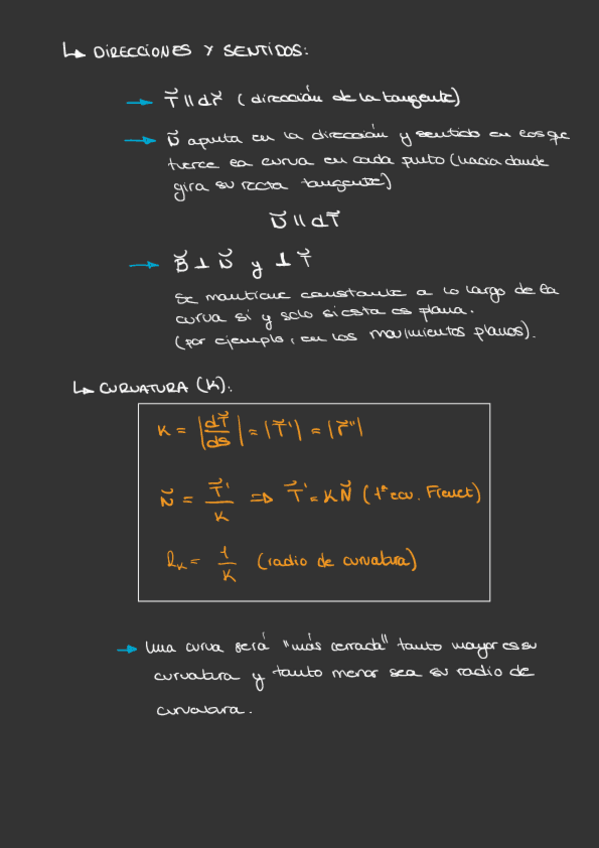 ↳ DIRECCIONES Y SENTIDOS:
→ T⃗ ∥ dr⃗ (dirección de la tangente)
→ N⃗ apunta en la dirección y sentido en los que
tuerce la curva en cada punto (hacia donde
gira su recta tangente)
N⃗ ∥ dT⃗
→ B⃗ ⊥ N⃗ y ⊥ T⃗
Se mantiene constante a lo largo de la
curva si y solo si esta es plana.
(por ejemplo, en los movimientos planos).
↳ CURVATURA (K):
K = |dT⃗/ds| = |T⃗'| = |r⃗''|
N⃗ = T⃗'/K ⇒ T⃗' = KN⃗ (1ª ecu. Frenet)
R_K = 1/K (radio de curvatura)
→ Una curva será "más cerrada" tanto mayor es su
curvatura y tanto menor sea su radio de
curvatura.